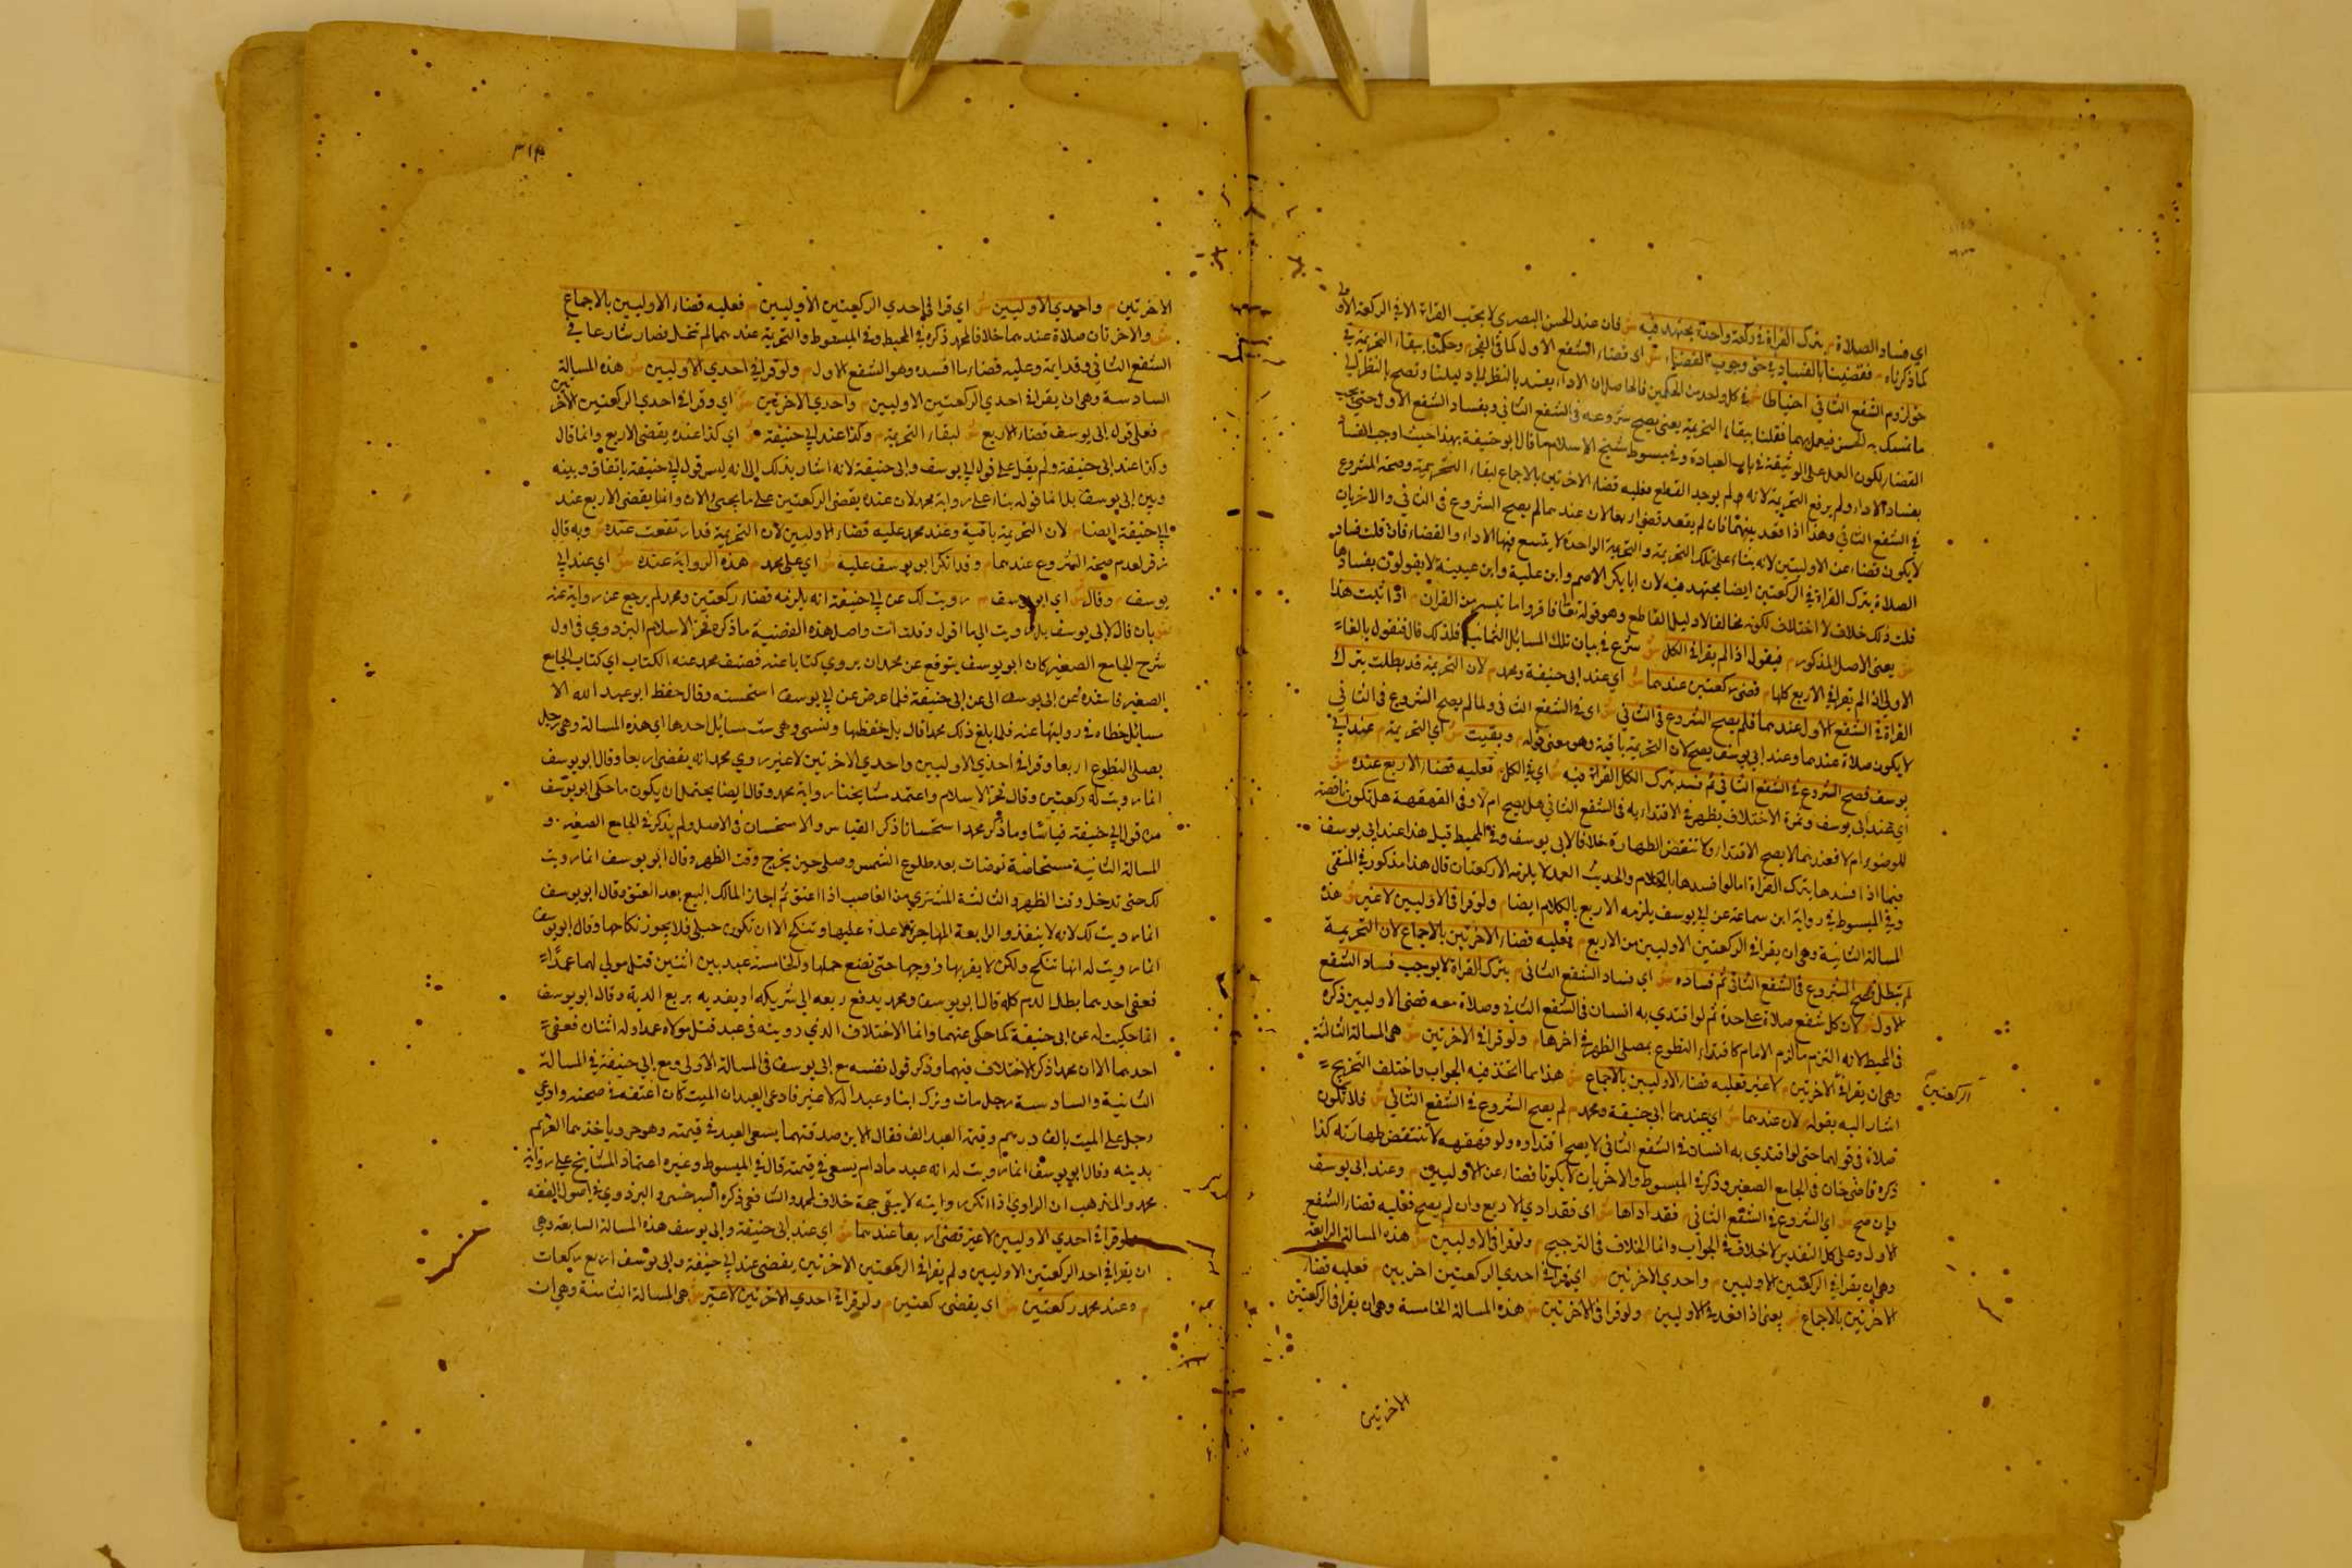 اي فساد الصلاة م بترك القراة في ركعة واحدة مجتهد فيه ش فان عند الحسن البصري لا يجب القراة الا في الركعة الاولى
كما ذكرناه م فقضينا بالفساد في حق وجوب القضاء ش اي قضاء الشفع الاول كما في الفجر م وحكمنا ببقاء التحريمة في
حق لزوم الشفع الثاني احتياطا ش في كل واحد من الحكمين
ما تمسك به الحسن فيعمل بهما فقلنا ببقاء التحريمة يعني يصح شروعه في الشفع الثاني وبفساد الشفع الاول حتى يجب
القضاء ليكون العمل على الوثيقة في باب العبادة وفي مبسوط شيخ الاسلام ما قال ابو حنيفة بهذا حيث اوجب الفساد
بفساد الاداء ولم يرفع التحريمة لانه م لم يوجد القطع فعليه قضاء الاخرتين بالاجماع لبقاء التحريمة وصحة الشروع
في الشفع الثاني وهذا اذا قعد بينهما فان لم يقعد قضى اربعا لان عندهما لم يصح الشروع في الثاني والاخريان
لا يكون قضاء عن الاوليين لانه بناء على تلك التحريمة والتحريمة الواحدة لا يتسع فيها الاداء والقضاء فان قلت فساد
الصلاة بترك القراة في الركعتين ايضا مجتهد فيه لان ابا بكر الاصم وابن علية وابن عيينة لا يقولون بفسادها
قلت ذلك خلاف لا اختلاف لكونه مخالفا لا دليل القاطع وهو قوله تعا فاقروا ما تيسر من القران م اذا ثبت هذا
ش يعني الاصل المذكور م فيقول اذا لم يقرا في الكل ش شرع في بيان تلك المسائل الثمانية فلذلك قال فنقول بالفاء
الاولى اذا لم يقرا في الاربع كلها م قضى ركعتين عندهما ش اي عند ابي حنيفة ومحمد م لان التحريمة قد بطلت بترك
القراة في الشفع الاول عندهما فلم يصح الشروع في الثاني ش اي في الشفع الثاني ولما لم يصح الشروع في الثاني
لا يكون صلاة عندهما وعند ابي يوسف يصح لان التحريمة باقية وهو معنى قوله م وبقيت ش اي التحريمة م عند ابي
يوسف فصح الشروع في الشفع الثاني ثم فسد بترك الكل القراة فيه ش اي في الكل م فعليه قضاء الاربع عنده ش
اي عند ابي يوسف وثمرة الاختلاف يظهر في الاقتداء به في الشفع الثاني هل يصح ام لا وفي القهقهة هل تكون ناقضة
للوضوء ام لا فعندهما لا يصح الاقتداء ولا تنقض الطهارة خلافا لابي يوسف وفي المحيط قيل هذا عند ابي يوسف
فيما اذا افسدها بترك القراة اما لو افسدها بالكلام والحديث العمد لا يلزمه الا ركعتان قال هذا مذكور في المنتقى
وفي المبسوط في رواية ابن سماعة عن ابي يوسف يلزمه الاربع بالكلام ايضا م ولو قرا في الاوليين لا غير ش هذه
المسالة الثانية وهي ان يقرا في الركعتين الاوليين من الاربع م فعليه قضاء الاخرتين بالاجماع لان التحريمة
لم تبطل فصح الشروع في الشفع الثاني ثم فساده ش اي فساد الشفع الثاني م بترك القراة لا يوجب فساد الشفع
الاول ش لان كل شفع صلاة على حدة ثم لو اقتدي به انسان في الشفع الثاني وصلاة معه قضى الاوليين ذكره
في المحيط لانه التزم ما لزم الامام كاقتداء التطوع بمصلى الظهر في اخرها م ولو قرا في الاخرتين ش هي المسالة الثالثة
وهي ان يقرا في الاخرتين م لا غير فعليه قضاء الاوليين بالاجماع ش هذا مما اتخذ فيه الجواب واختلف التخريج
الركعتين
اشار اليه بقوله م لان عندهما ش اي عندهما ابي حنيفة ومحمد م لم يصح الشروع في الشفع الثاني ش فلا تكون
صلاة في قولهما حتى لو اقتدي به انسان في الشفع الثاني لا يصح اقتداوه ولو قهقهه لا تنتقض طهارته كذا
ذكره قاضي خان في الجامع الصغير وذكر في المبسوط والاخريان لا يكونا قضاء عن الاوليين م وعند ابي يوسف
وان صح ش اي الشروع في الشفع الثاني م فقد اداها ش اي فقد ادي الاربع وان لم يصح فعليه قضاء الشفع
الاول وعلى كل التقدير لا خلاف في الجواب وانما الخلاف في الترجيح م ولو قرا في الاوليين ش هذه المسالة الرابعة
وهي ان يقرا في الركعتين الاوليين م واحدي الاخرتين ش اي قرا في احدي الركعتين اخريين م فعليه قضاء
الاخرتين بالاجماع ش يعني اذا قعد في الاوليين م ولو قرا في الاخرتين ش هذه المسالة الخامسة وهي ان يقرا في الركعتين
الاخرتين
٣١٣
الاخرتين م واحدي الاوليين ش اي قرا في احدي الركعتين الاوليين م فعليه قضاء الاوليين بالاجماع
ش والاخرتان صلاة عندهما خلافا لمحمد ذكره في المحيط وفي المبسوط والتحريمة عندهما لم تنحل فصار شارعا في
الشفع الثاني وقد اتمه وعليه قضاء ما افسده وهو الشفع الاول م ولو قرا في احدي الاوليين ش هذه المسالة
السادسة وهي ان يقرا في احدي الركعتين الاوليين م واحدي الاخرتين ش اي وقرا في احدي الركعتين الاخرتين
م فعلى قول ابي يوسف قضاء الاربع ش لبقاء التحريمة م وكذا عند ابي حنيفة ش اي كذا عنده يقضي الاربع وانما قال
وكذا عند ابي حنيفة ولم يقل على قول ابي يوسف وابي حنيفة لانه اشار بذلك الى انه ليس قول ابي حنيفة باتفاق وبينه
وبين ابي يوسف بل انما قوله بناء على رواية محمد لان عنده يقضي الركعتين على ما يجئ الان وانما يقضي الاربع عند
ابي حنيفة ايضا م لان التحريمة باقية وعند محمد عليه قضاء الاوليين لان التحريمة قد ارتفعت عنده ش وبه قال
زفر لعدم صحة الشروع عندهما م وقد انكر ابو يوسف عليه ش اي على محمد م هذه الرواية عنده ش اي عند ابي
يوسف م وقال ش اي ابو يوسف م رويت لك عن ابي حنيفة انه يلزمه قضاء ركعتين ومحمد لم يرجع عن رواية عنه
ش بان قال لابي يوسف بل رويت الي ما اقول وقلت انت واصل هذه القضية ما ذكره فخر الاسلام البزدوي في اول
شرح الجامع الصغير كان ابو يوسف يتوقع عن محمد ان يروي كتابا عنه فصنف محمد عنه الكتاب اي كتاب الجامع
الصغير فاسنده عن ابي يوسف الى عن ابي حنيفة فلما عرض عن ابي يوسف استحسنه وقال حفظ ابو عبد الله الا
مسائل خطاه في روايتها عنه فلما بلغ ذلك محمدا قال بل حفظها ونسى وهي ست مسائل احدها اي هذه المسالة وهي رجل
يصلي التطوع اربعا وقرا في احدي الاوليين واحدي الاخرتين لا غير روي محمد انه يقضي اربعا وقال ابو يوسف
انما رويت له ركعتين وقال فخر الاسلام واعتمد مشايخنا رواية محمد وقال ايضا يحتمل ان يكون ما حكى ابو يوسف
من قول ابي حنيفة قياسا وما ذكر محمد استحسانا ذكر القياس والاستحسان في الاصل ولم يذكر في الجامع الصغير و
المسالة الثانية مستحاضة توضات بعد طلوع الشمس وصلى حين يخرج وقت الظهر وقال ابو يوسف انما رويت
لك حتى تدخل وقت الظهر والثالثة المشتري من الغاصب اذا اعتق ثم اجاز المالك البيع بعد العتق وقال ابو يوسف
انما رويت لك لانه لا ينفذ والرابعة المهاجرة لا عدة عليها وتنكح الا ان تكون حبلى فلا يجوز نكاحها وقال ابو يوسف
انما رويت له انها تنكح ولكن لا يقربها زوجها حتى تضع حملها والخامسة عبد بين اثنين قتل مولى لهما عمدا
فعفى احدهما بطل الدم كله قال ابو يوسف ومحمد يدفع ربعه الى شريكه او يفديه بربع الدية وقال ابو يوسف
انما حكيت له عن ابي حنيفة كما حكى عنهما وانما الاختلاف الذي رويته في عبد قتل مولاه عمدا وله اثنان فعفى
احدهما الا ان محمدا ذكر الاختلاف فيهما وذكر قول نفسه مع ابي يوسف في المسالة الاولى ومع ابي حنيفة في المسالة
الثانية والسادسة رجل مات وترك ابنا وعبدا له لا غير فادعى العبد ان الميت كان اعتقه في صحته وادعي
رجل على الميت بالف درهم وقيمة العبد الف فقال الابن صدقتهما يسعى العبد في قيمته وهو حر وياخذهما الغريم
بدينه وقال ابو يوسف انما رويت له انه عبد ما دام يسعى في قيمته قال في المبسوط وغيره اعتماد المشايخ على رواية
محمد والمذهب ان الراوي اذا انكر روايته لا يبقى حجة خلافا لمحمد والشافعي ذكره السرخسي والبزدوي في اصول الفقه
م ولو قرا في احدي الاوليين لا غير قضى اربعا عندهما ش اي عند ابي حنيفة وابي يوسف هذه المسالة السابعة وهي
ان يقرا في احد الركعتين الاوليين ولم يقرا في الركعتين الاخرتين يقضي عند ابي حنيفة وابي يوسف اربع ركعات
م وعند محمد ركعتين ش اي يقضي ركعتين م ولو قرا في احدي الاخرتين لا غير ش هي المسالة الثامنة وهي ان